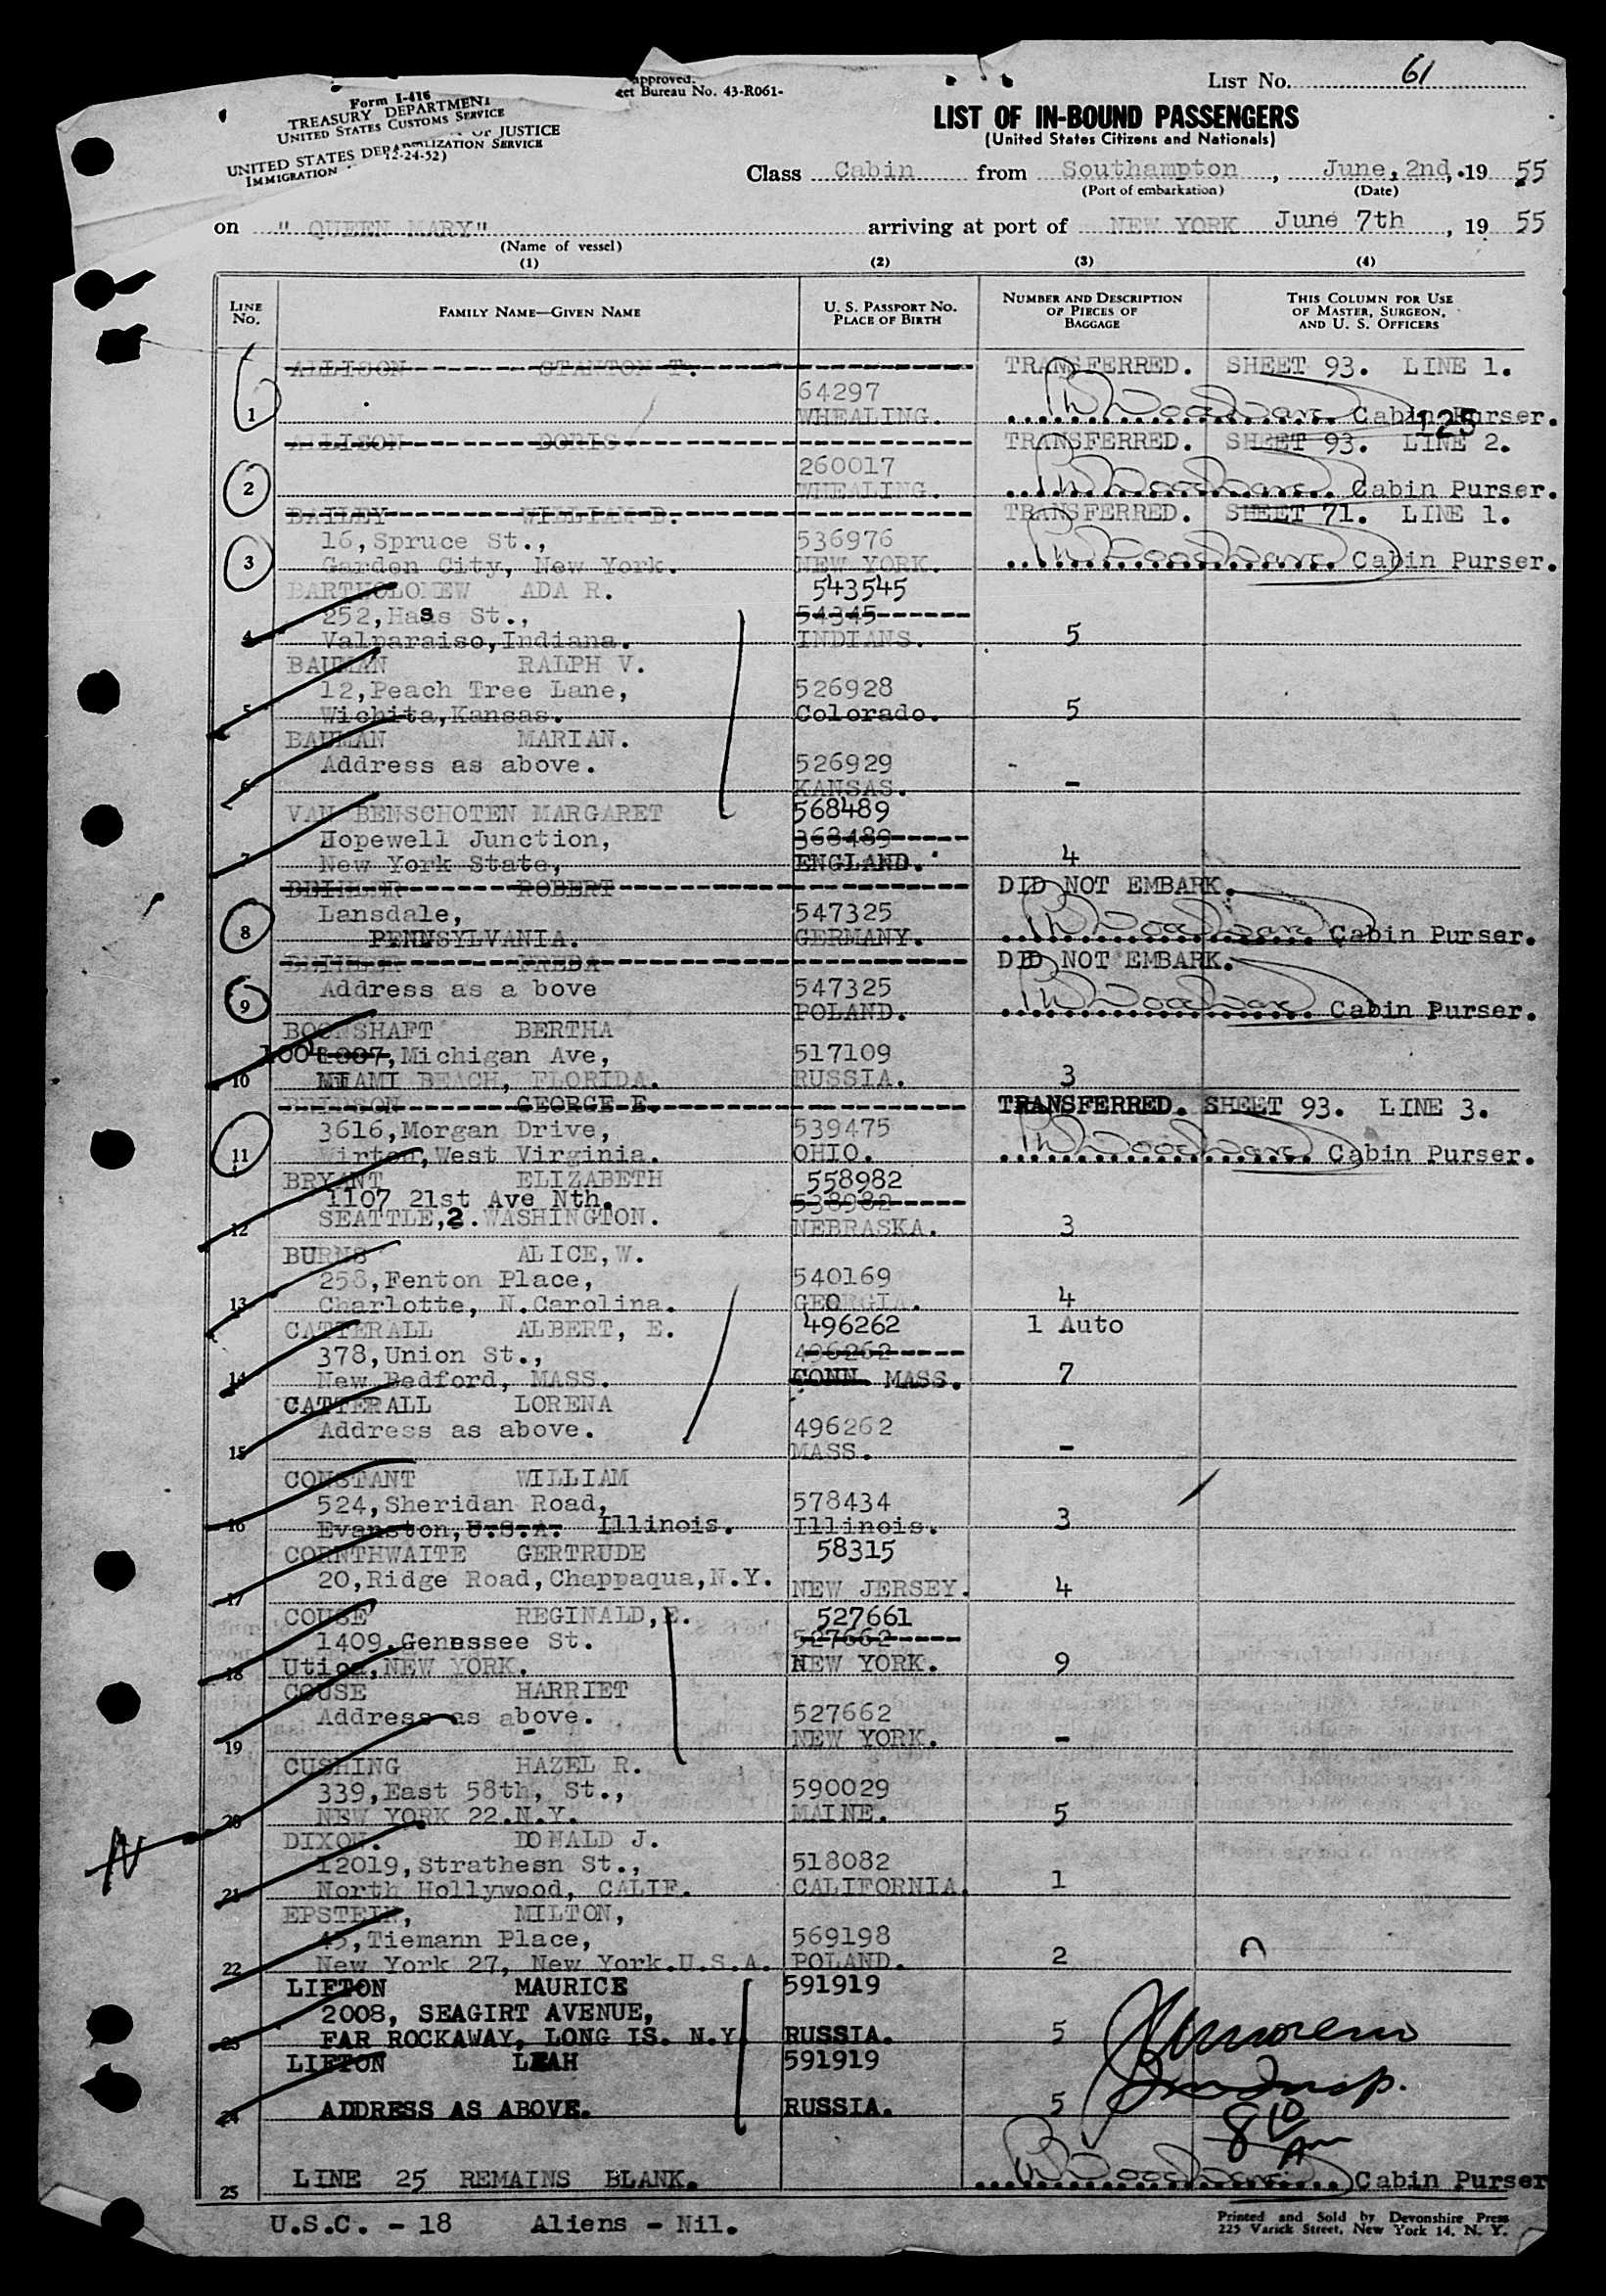 Form I-416
TREASURY DEPARTMENT
UNITED STATES CUSTOMS SERVICE
OF JUSTICE
UNITED STATES
IMMIGRATION
12-24-52)
approved.
et Bureau No. 43-R061-
LIST No. 61
LIST OF IN-BOUND PASSENGERS
(United States Citizens and Nationals)
Class Cabin from Southampton, June, 2nd, 19 55
(Port of embarkation) (Date)
on "QUEEN MARY" arriving at port of NEW YORK June 7th, 19 55
(Name of vessel)
(1) (2) (3) (4)
LINE No. FAMILY NAME—GIVEN NAME U. S. PASSPORT No. PLACE OF BIRTH NUMBER AND DESCRIPTION OF PIECES OF BAGGAGE THIS COLUMN FOR USE OF MASTER, SURGEON, AND U. S. OFFICERS
ALLISON STANTON T. TRANSFERRED. SHEET 93. LINE 1.
64297
1 WHEALING. Cabin Purser.
125
ALLISON DORIS TRANSFERRED. SHEET 93. LINE 2.
260017
2 WHEALING. Cabin Purser.
BAILEY WILLIAM D. TRANSFERRED. SHEET 71. LINE 1.
16, Spruce St., 536976
3 Garden City, New York. NEW YORK. Cabin Purser.
BARTHOLOMEW ADA R. 543545
252, Haas St., 54345
4 Valparaiso, Indiana. INDIANS. 5
BAUMAN RALPH V.
12, Peach Tree Lane, 526928
5 Wichita, Kansas. Colorado. 5
BAUMAN MARIAN.
Address as above. 526929
6 KANSAS. -
VAN BENSCHOTEN MARGARET 568489
Hopewell Junction, 368489
7 New York State, ENGLAND. 4
ROBERT DID NOT EMBARK.
Lansdale, 547325
8 PENNSYLVANIA. GERMANY. Cabin Purser.
FREDA DID NOT EMBARK.
Address as a bove 547325
9 POLAND. Cabin Purser.
BOONSHAFT BERTHA
Michigan Ave, 517109
10 MIAMI BEACH, FLORIDA. RUSSIA. 3
GEORGE E. TRANSFERRED. SHEET 93. LINE 3.
3616, Morgan Drive, 539475
11 Wirton, West Virginia. OHIO. Cabin Purser.
BRYANT ELIZABETH 558982
1107 21st Ave Nth. 538982
12 SEATTLE, 2. WASHINGTON. NEBRASKA. 3
BURNS ALICE, W.
258, Fenton Place, 540169
13 Charlotte, N.Carolina. GEORGIA. 4
CATTERALL ALBERT, E. 496262 1 Auto
378, Union St., 496262
14 New Bedford, MASS. CONN MASS. 7
CATTERALL LORENA
Address as above. 496262
15 MASS. -
CONSTANT WILLIAM
524, Sheridan Road, 578434
16 Evanston, U.S.A. Illinois. Illinois. 3
CORNTHWAITE GERTRUDE 58315
20, Ridge Road, Chappaqua, N.Y.
17 NEW JERSEY. 4
COUSE REGINALD, E. 527661
1409, Genessee St. 527662
18 Utica, NEW YORK. NEW YORK. 9
COUSE HARRIET
Address as above. 527662
19 NEW YORK. -
CUSHING HAZEL R.
339, East 58th, St., 590029
20 NEW YORK 22.N.Y. MAINE. 5
N
DIXON. DONALD J.
12019, Strathesn St., 518082
21 North Hollywood, CALIF. CALIFORNIA. 1
EPSTEIN, MILTON,
45, Tiemann Place, 569198
22 New York 27, New York.U.S.A. POLAND. 2
LIFTON MAURICE 591919
2008, SEAGIRT AVENUE,
23 FAR ROCKAWAY, LONG IS. N.Y RUSSIA. 5
LIFTON LEAH 591919
24 ADDRESS AS ABOVE. RUSSIA. 5
25 LINE 25 REMAINS BLANK. Cabin Purser
U.S.C. - 18 Aliens - Nil.
Printed and Sold by Devonshire Press
225 Varick Street, New York 14, N. Y.